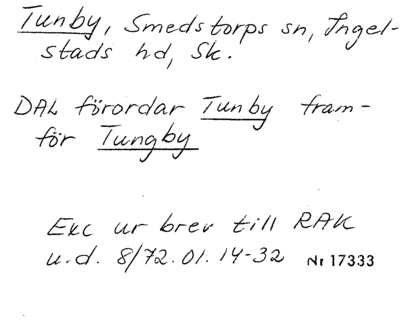 Tunby, Smedstorps sn, Ingel-
stads hd, Sk.
DAL förordar Tunby fram-
för Tungby
Exc ur brev till RAK
u.d. 8/72.01.14-32 Nr 17333